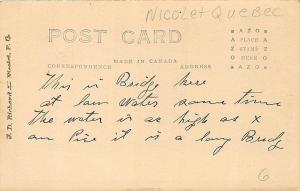 NICOLET QUEBEC
POST CARD
MADE IN CANADA
CORRESPONDENCE
ADDRESS
AZO
PLACE
STAMP
HERE
AZO
J. D. Richard
P. Q.
This is Bridge here
at low water some time
the water is as high as x
on Pice it is a long Bredg
6